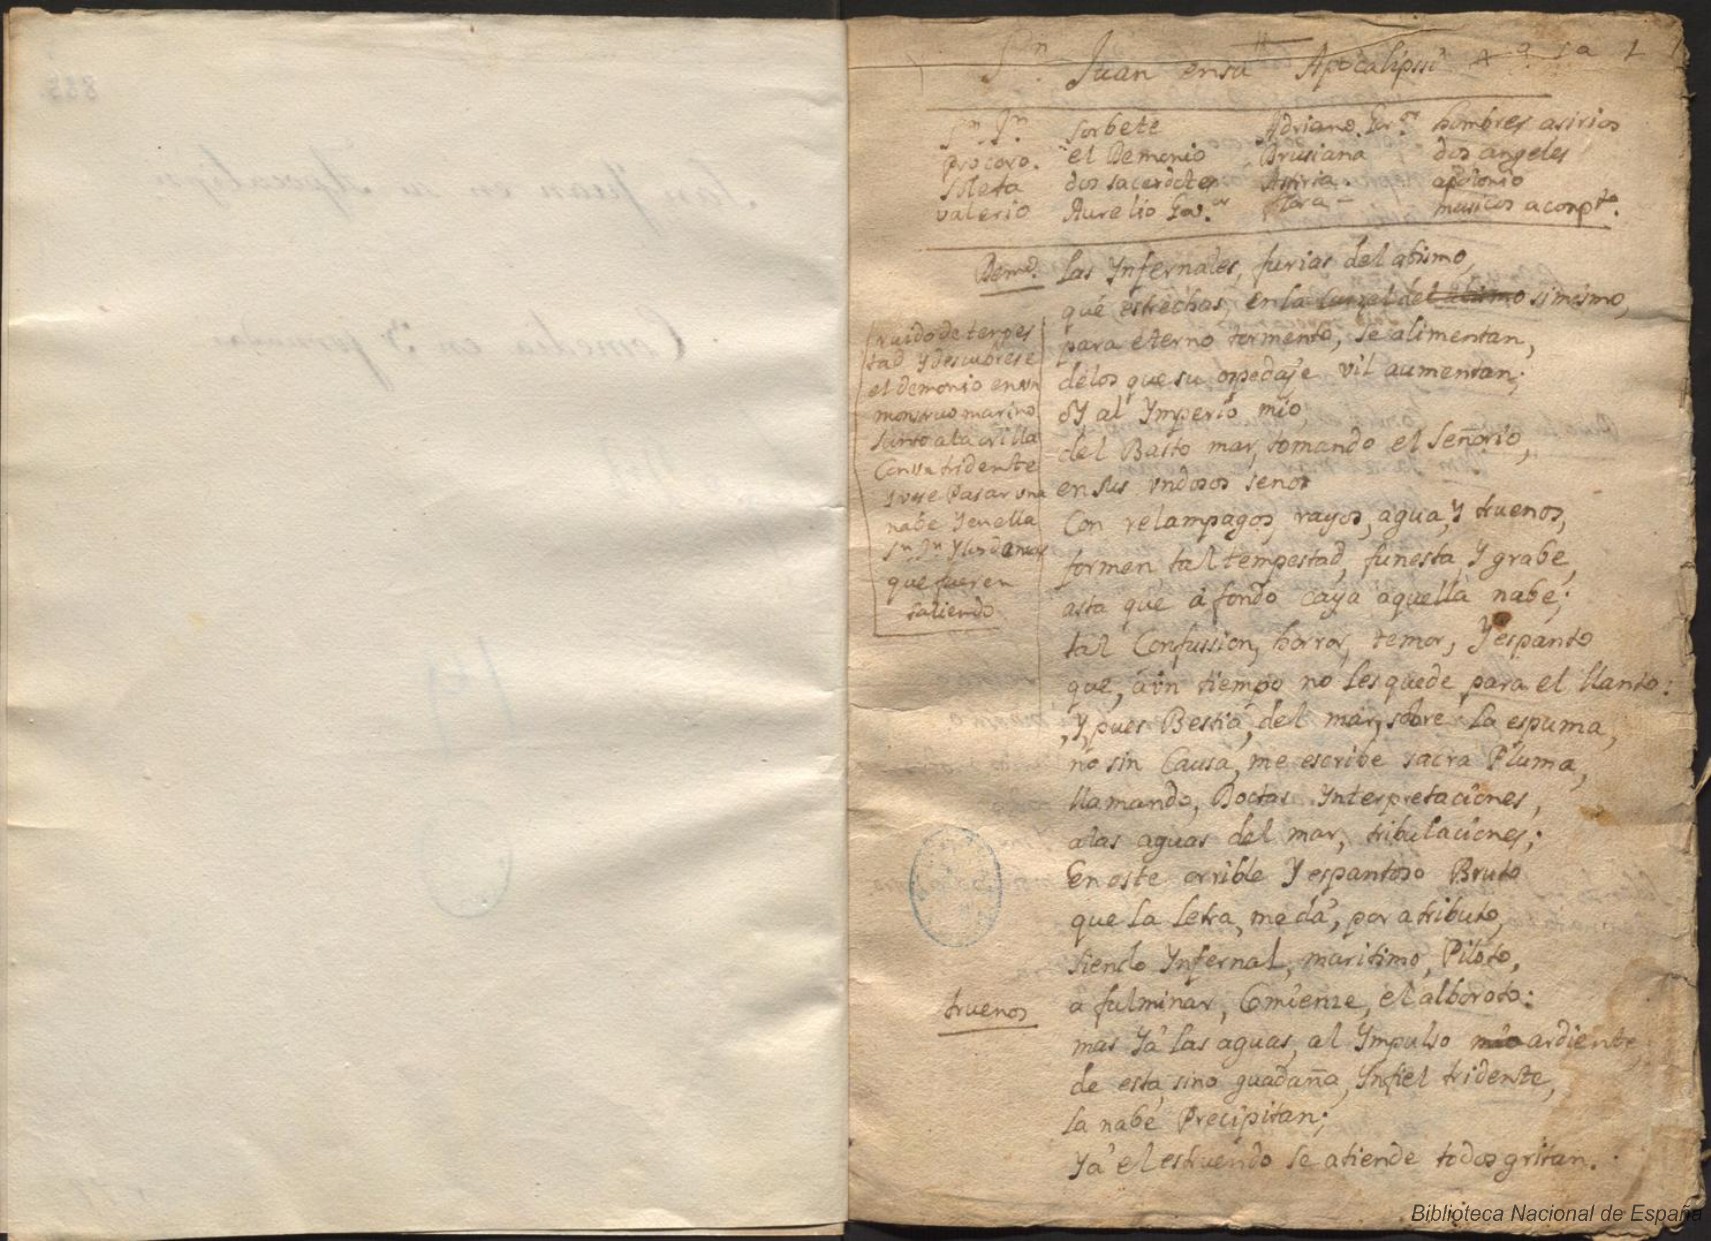 Sn Juan en su Apocalipssi Jada 1
Sn Jn
Procoro.
Valerio
Sorbete
el Demonio
dos sacerdotes
Aurelio Gov.or
Adriano
Drusiana
Flora
hombres asirios
dos angeles
apolonio
musicos acompto.
Demo. Las Ynfernales, furias del abismo,
que estrechas, en la carzel del abismo simismo,
para eterno tormento, se alimentan,
delos que su ospedaje vil aumentan;
oY al Ymperio mio,
del Basto mar, tomando el señorio,
en sus undosos senos
Con relampagos, rayos, agua, Y truenos,
formen tal tempestad, funesta, Y grabe,
asta que á fondo caya aquella nabe;
tal Confussion, horror, temor, Y espanto
que, aún tiempo no les quede para el llanto:
Y, pues Bestia, del mar, sobre la espuma,
nó sin Causa, me escribe sacra Pluma,
llamando, Doctas Ynterpretaciones,
alas aguas del mar, tribulaciones;
En este orrible Y espantoso Bruto
que la letra, me dá, por atributo,
siendo Ynfernal, maritimo, Piloto,
a fulminar, Comienze, el alboroto:
mas Yá las aguas, al Ympulso mio ardiente,
de esta, sino guadaña, Ynfiel tridente,
la nabe Precipitan;
Yá el estruendo se atiende todos gritan.
ruido de tenpes
tad Y descubrese
el demonio en un
monstruo marino
surto a la orilla
Con un tridente
Y vese Pasar una
nabe Y en ella
Sn Jn Y los demas
que fueren
saliendo
truenos
Biblioteca Nacional de España